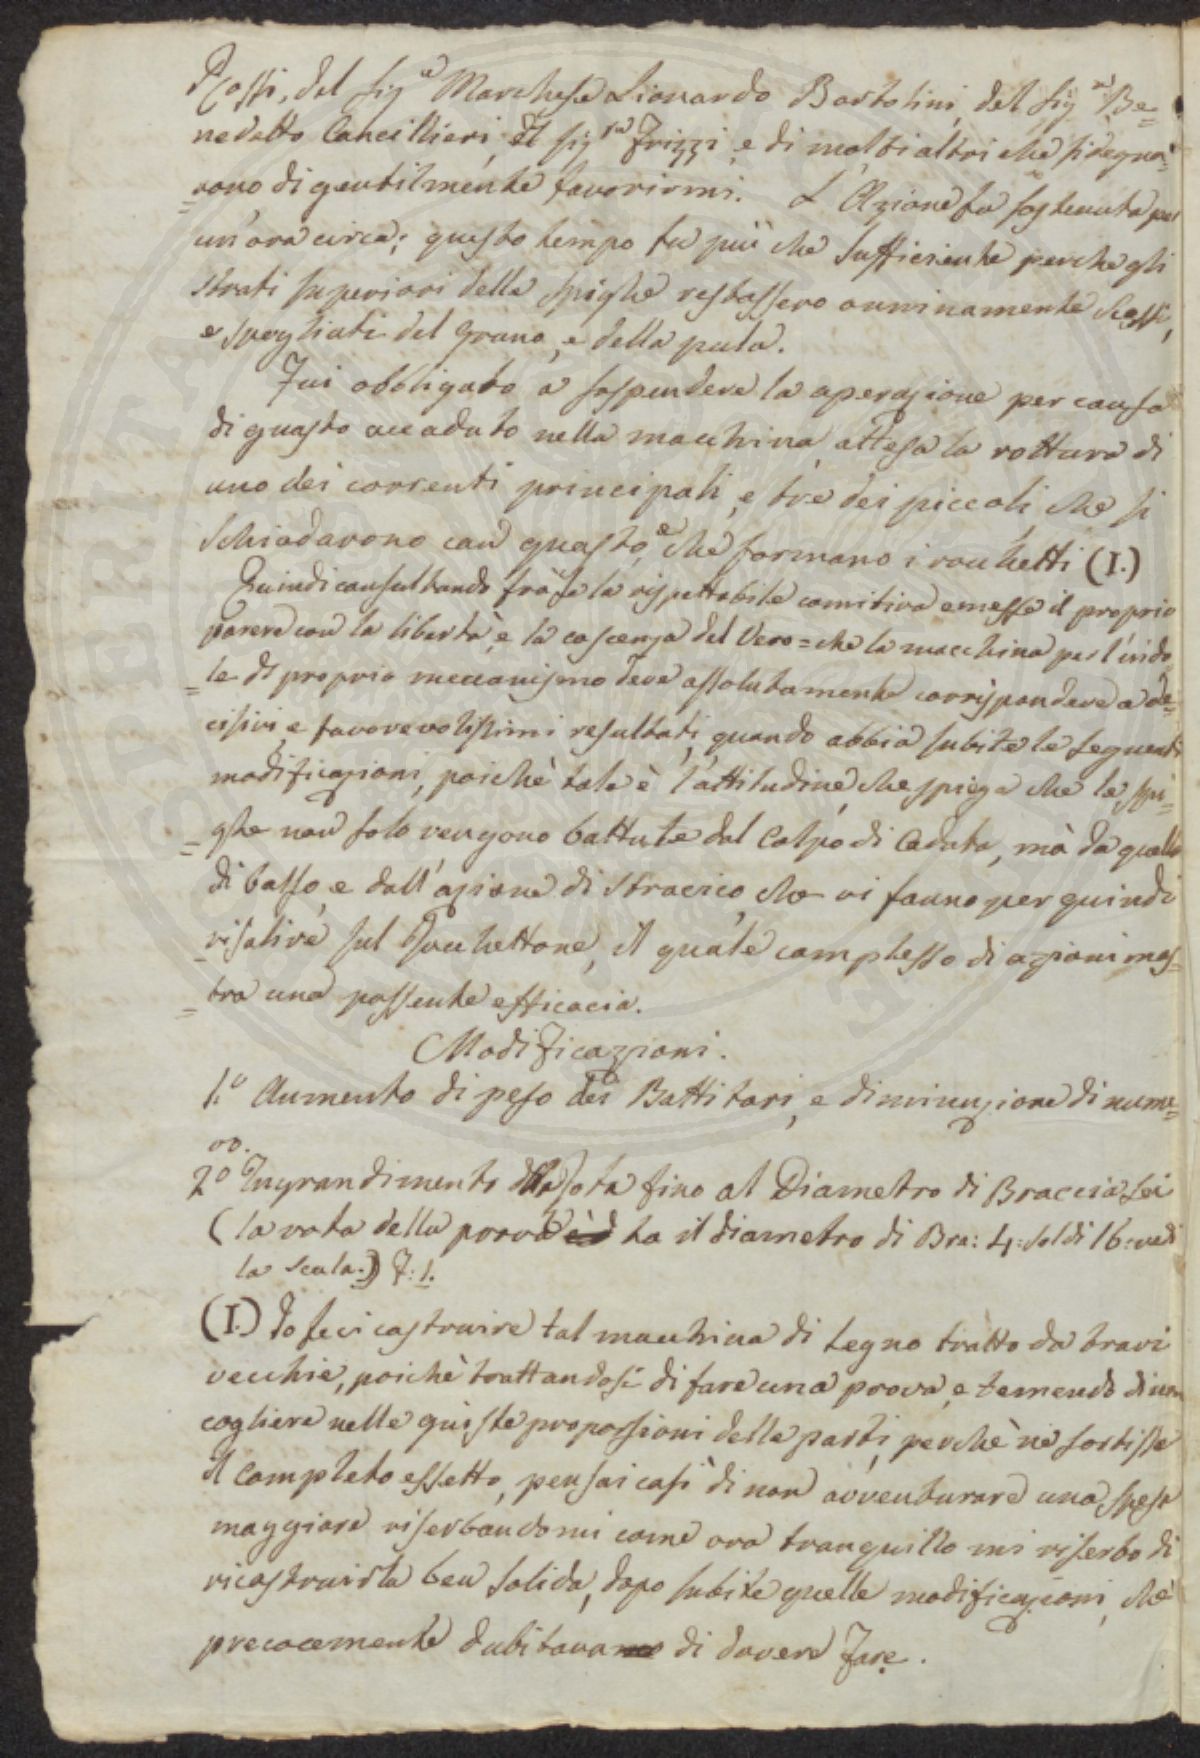 Rossi, del Sig.e Marchese Lionardo Bartolini, del Sig.re Be=
nedetto Cancellieri, del Sig.re Frizzi, e di molti altri che si degna=
=rono di gentilmente favorirmi. L'Azione fu sostenuta per
un'ora circa; questo tempo fu più che sufficiente perche gli
strati superiori delle spighe restassero onninamente scossi,
e spogliati del grano, e della pula.
Fui obbligato a sospendere la operazione per causa
di guasto accaduto nella macchina, attesa la rottura di
uno dei correnti principali, e tre dei piccoli, che si
schiodarono con questo, e che formano i rocchetti (I.)
Quindi consultando frà se la rispettabile comitiva emesse il proprio
parere con la libertà, e la coscenza del Vero = che la macchina per l'indo=
=le di proprio meccanismo deve assolutamente corrispondere a de=
cisivi, e favorevolissimi resultati, quando abbia subite le seguenti
modificazioni, poichè tale è l'attitudine, che spiega che le spi=
=ghe non solo vengono battute dal Colpo di Caduta, mà da quello
di basso, e dall'azione di stracico, che vi fanno per quindi
risalire sul Rocchettone, il quale complesso di azioni mos=
=tra una possente efficacia.
Modificazioni.
1.o Aumento di peso dei Battitori, e diminuzione di nume=
ro.
2o Ingrandimento della rota fino al Diametro di Braccia Sei
(la rota della prova ha il diametro di Bra: 4: soldi 16: vedi
la scala.) F: 1.
(I.) Io feci costruire tal macchina di legno tratto da travi
vecchie, poichè trattandosi di fare una prova, e temendo di non
cogliere nelle giuste proporsioni delle parti, perchè nè sortisse
il completo effetto, pensai così di non avventurare una spesa
maggiore riserbandomi come ora tranquillo mi riserbo di
ricostruirla ben solida, dopo subite quelle modificazioni, che
precocemente dubitava di dovere fare.